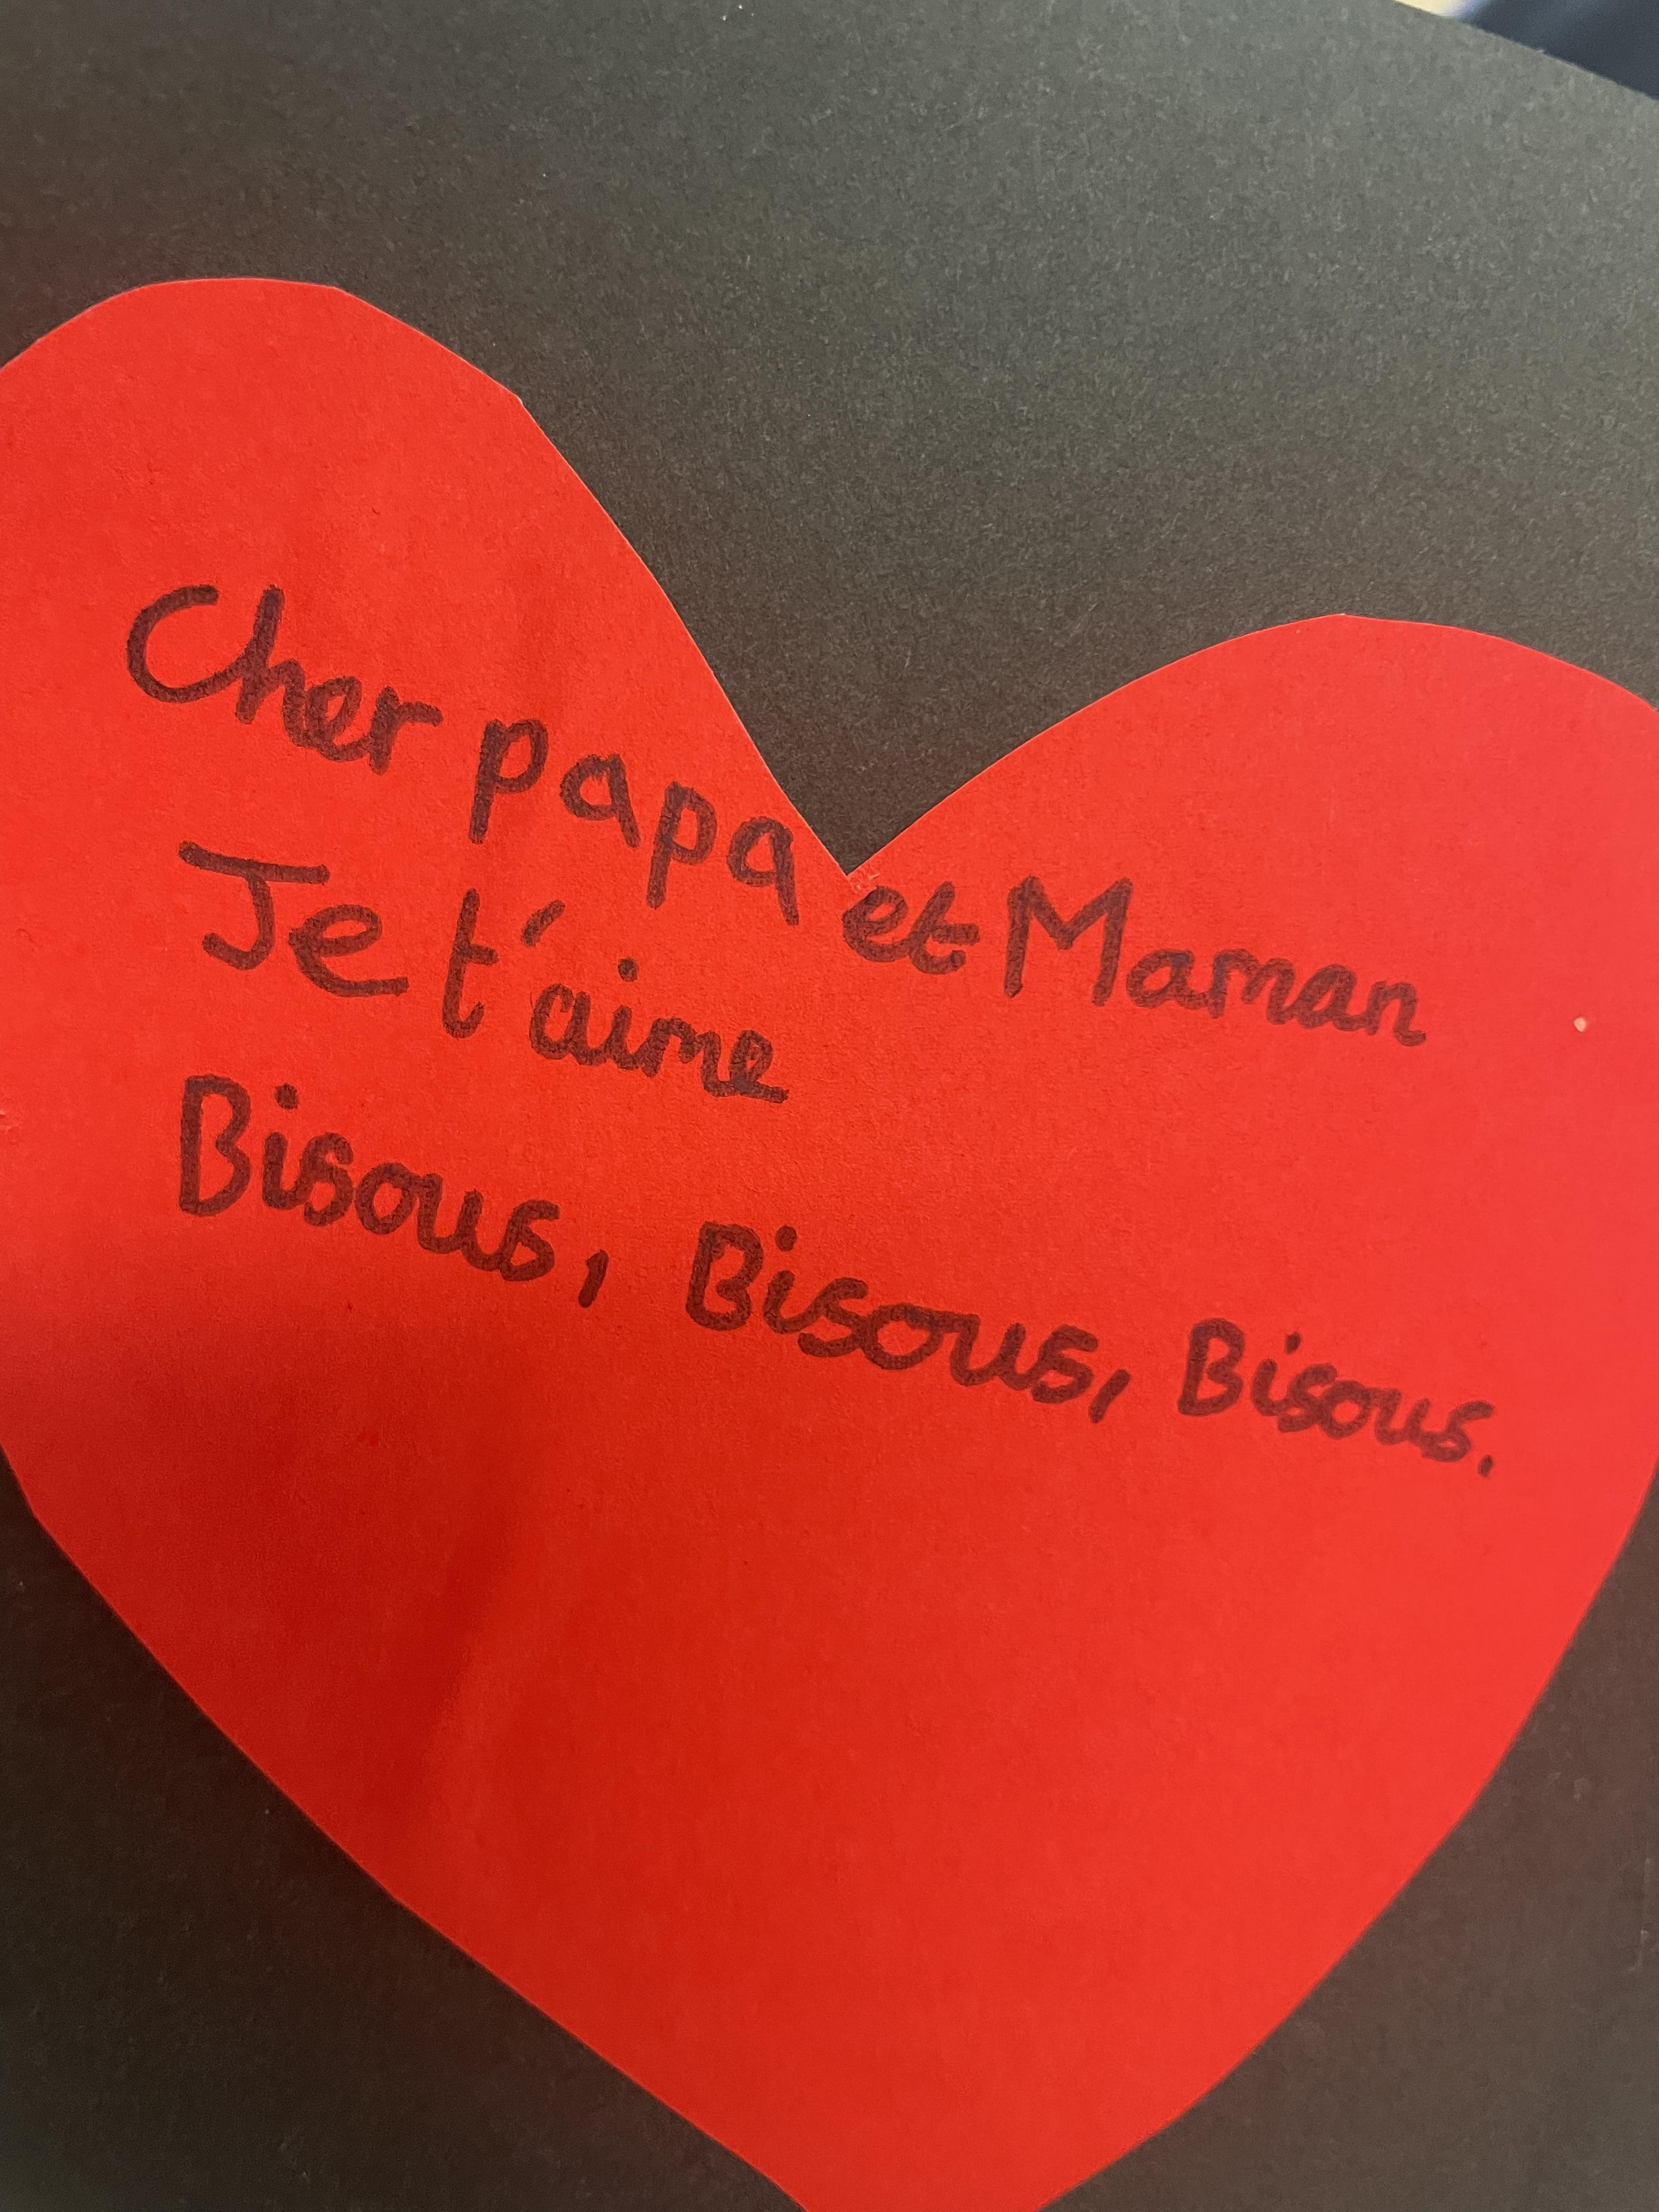 Cher papa et Maman
Je t'aime
Bisous, Bisous, Bisous.